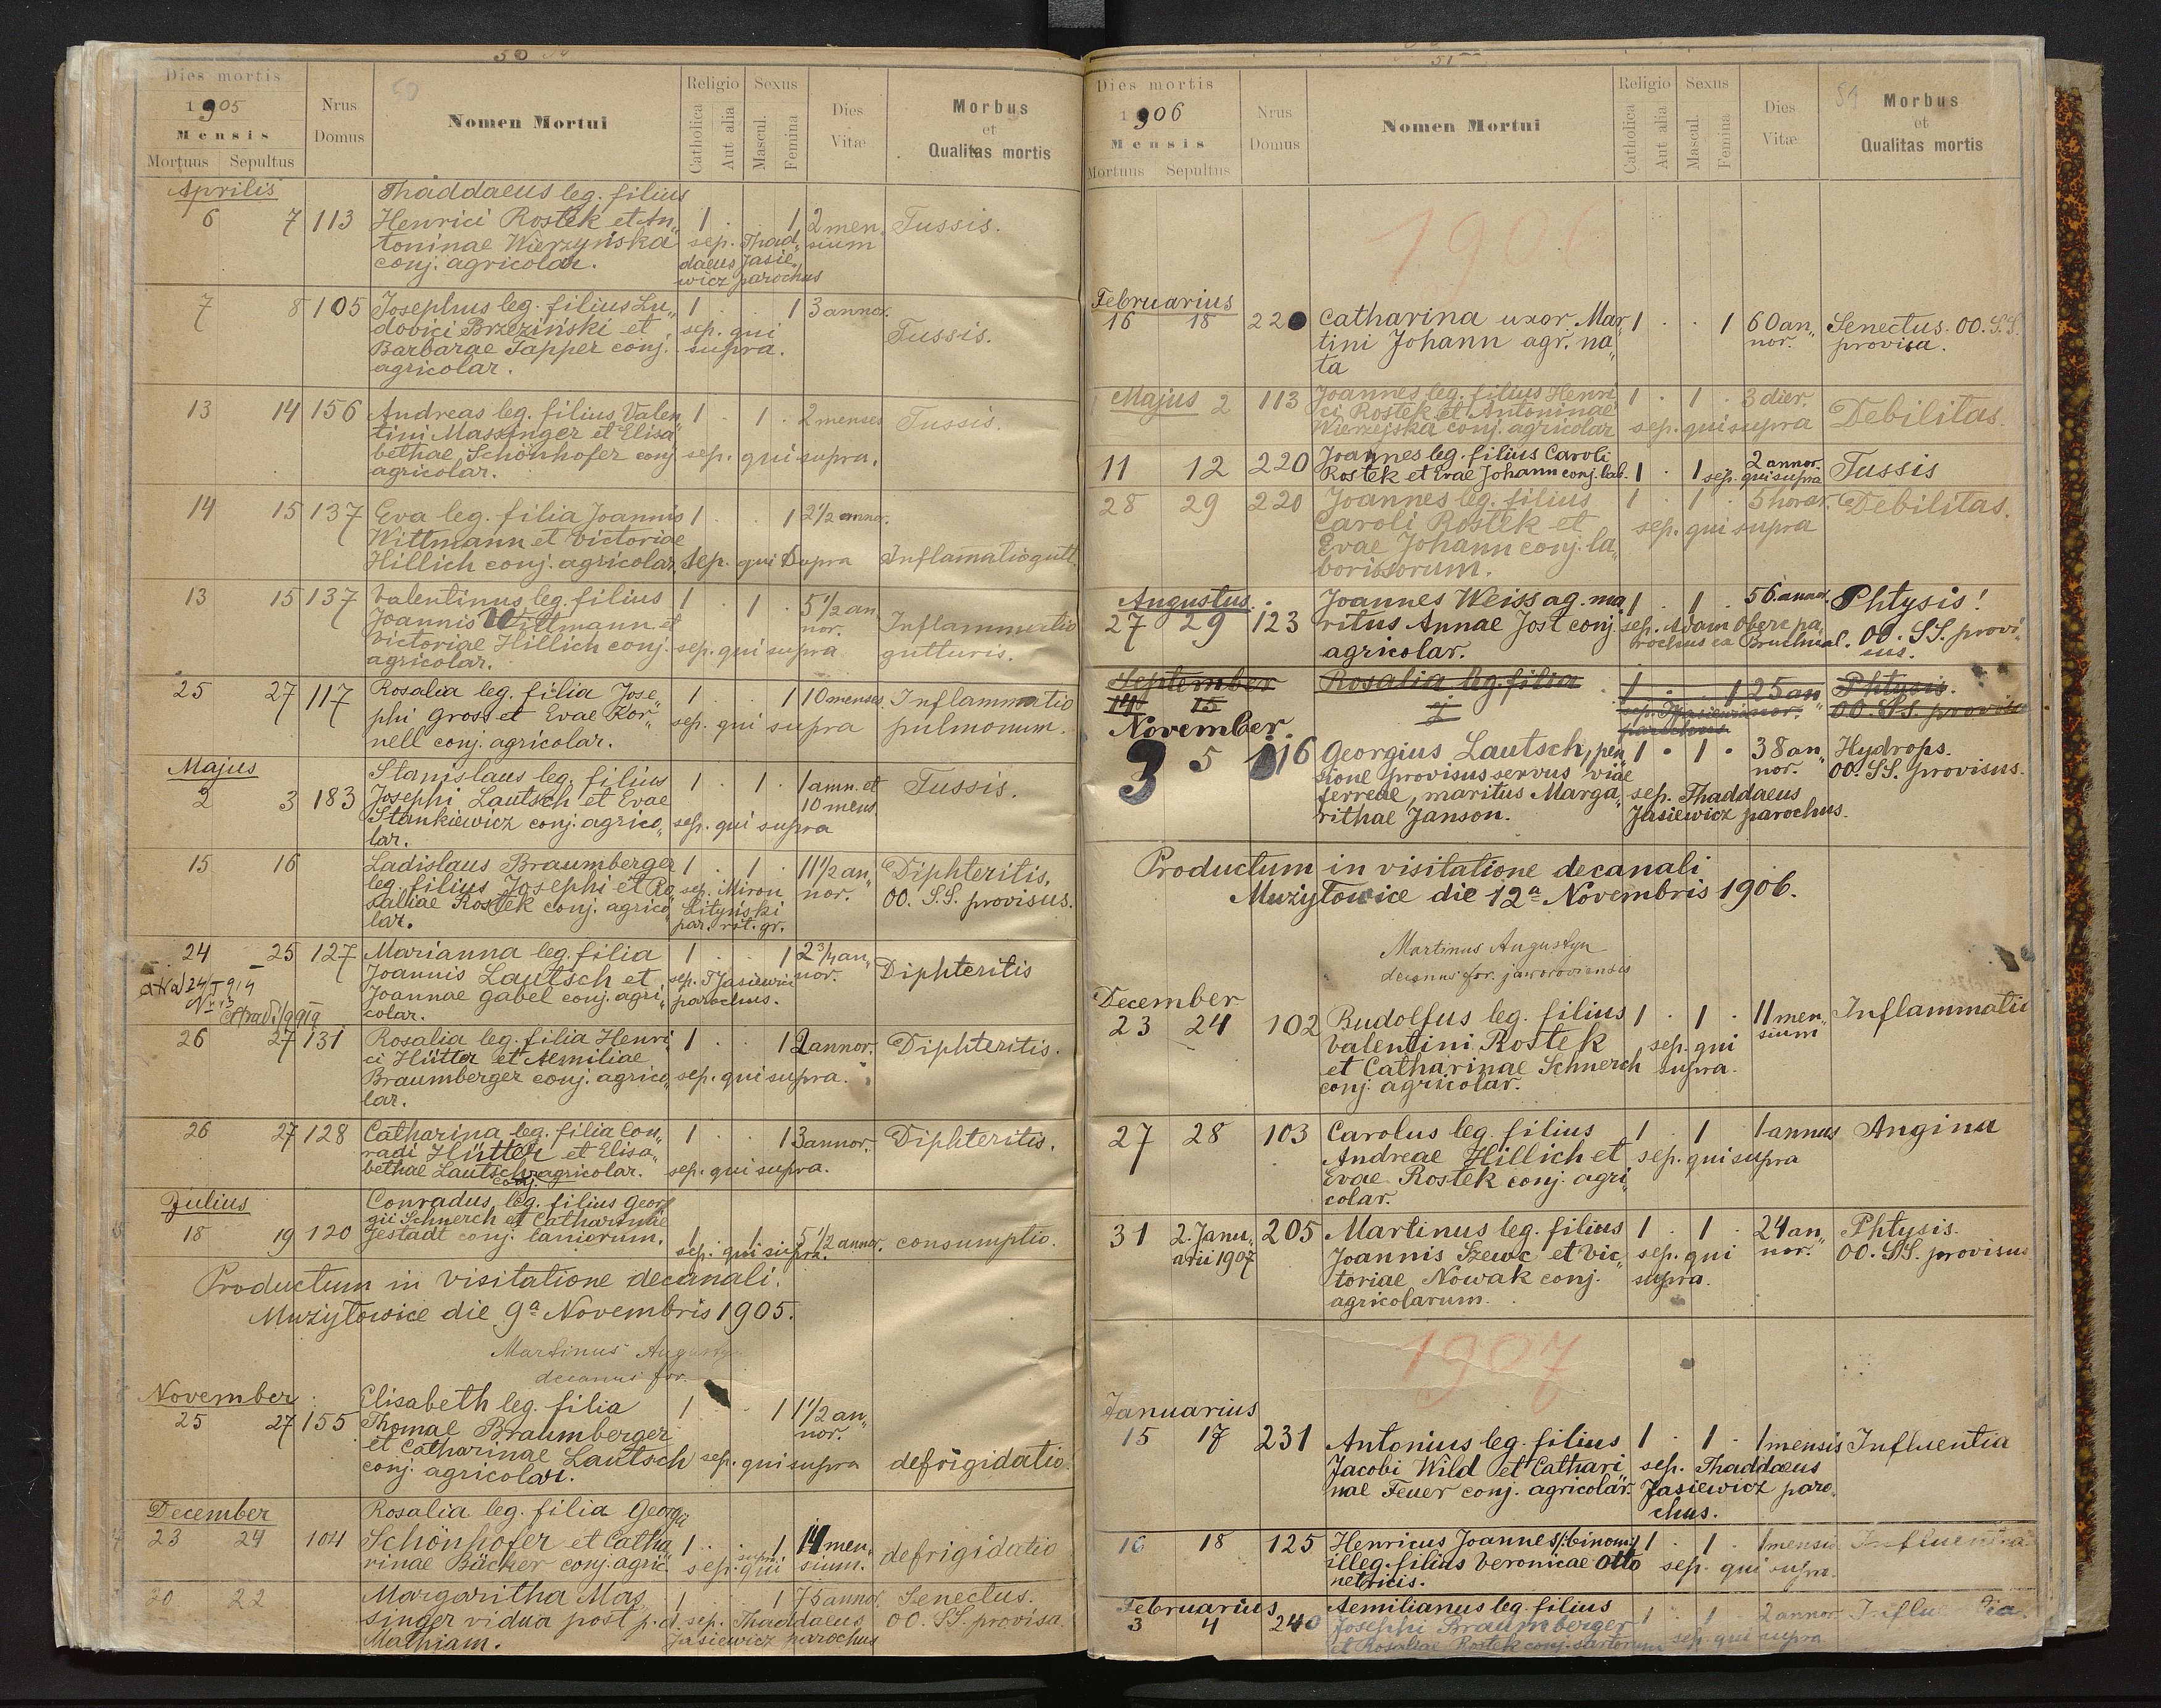 50
Dies mortis
1905
Mensis
Mortuus Sepultus
Nrus
Domus
50
Nomen Mortui
Religio
Catholica
Aut alia
Sexus
Mascul.
Femina
Dies
Vitæ
Morbus
et
Qualitas mortis
Aprilis
6 7 113
Thaddaeus leg. filius
Henrici Rostek et An„
toninae Wierzyńska
conj. agricolar.
1 . . 1
sep. Thad„
daeus Jasie„
wicz parochus
2 men„
sium
Tussis.
7 8 105
Josephus leg. filius Lu„
dovici Brzeziński et
Barbarae Tapper conj.
agricolar.
1 . . 1
sep. qui
supra.
3 annor.
Tussis.
13 14 156
Andreas leg. filius Valen„
tini Massinger et Elisa„
bethae Schönhofer conj.
agricolar.
1 . 1 .
sep. qui supra.
2 menses
Tussis.
14 15 137
Eva leg. filia Joannis
Wittmann et Victoriae
Hillich conj. agricolar.
1 . . 1
sep. qui supra
2 1/2 annor.
Inflamatio gutt.
13 15 137
Valentinus leg. filius
Joannis Wittmann et
Victoriae Hillich conj.
agricolar.
1 . 1 .
sep. qui supra
5 1/2 an„
nor.
Inflammatio
gutturis.
25 27 117
Rosalia leg. filia Jose„
phi Gross et Evae Kor„
nell conj. agricolar.
1 . . 1
sep. qui supra
10 menses
Inflammatio
pulmonum.
Majus
2 3 183
Stanislaus leg. filius
Josephi Lautsch et Evae
Stankiewicz conj. agrico„
lar.
1 . 1 .
sep. qui supra
1 ann. et
10 mens
Tussis.
15 16
Ladislaus Braumberger
leg. filius Josephi et Ro„
saliae Rostek conj. agrico„
lar.
1 . 1 .
sep. Miron
Lityński
par. rit. gr.
11 1/2 an„
nor.
Diphteritis.
OO. S.S. provisus.
24 25 127
Marianna leg. filia
Joannis Lautsch et
Joannae Gabel conj. agri„
colar.
1 . . 1
sep. T Jasiewicz
parochus.
2 3/4 an„
nor.
Diphteritis
26 27 131
Rosalia leg. filia Henri„
ci Hütter et Aemiliae
Braumberger conj. agrico„
lar.
1 . . 1
sep. qui supra.
2 annor.
Diphteritis.
26 27 128
Catharina leg. filia Con„
radi Hütter et Elisa„
bethae Lautsch agricolar.
conj.
1 . . 1
sep. qui supra.
3 annor.
Diphteritis.
Julius
18 19 120
Conradus leg. filius Geor„
gii Schnerch et Catharinae
Jestadt conj. laniorum.
1 . 1
sep. qui supra.
5 1/2 annor.
consumptio.
Productum in visitatione decanali.
Mużyłowice die 9a Novembris 1905.
Martinus Augustyn
decanus for.
November
25 27 155
Elisabeth leg. filia
Thomae Braumberger
et Catharinae Lautsch
conj. agricolar.
1 . . 1
sep. qui supra
1 1/2 an„
nor.
defrigidatio
December
23 24 104
Rosalia leg. filia Georgii
Schönhofer et Catha„
rinae Bäcker conj. agric.
1 . . 1
sep. qui supra
14 men„
sium.
defrigidatio
20 22
Margaritha Mas„
singer vidua post p. d.
Mathiam.
1 . . 1
sep. Thaddaeus
Jasiewicz parochus
75 annor.
Senectus.
OO. SS. provisa.
51
Dies mortis
1906
Mensis
Mortuus Sepultus
Nrus
Domus
Nomen Mortui
Religio
Catholica
Aut alia
Sexus
Mascul.
Femina
Dies
Vitæ
51
Morbus
et
Qualitas mortis
1906
Februarius
16 18 220
Catharina uxor Mar„
tini Johann agr. na„
ta
1 . . 1
60 an„
nor.
Senectus. OO. S.S.
provisa.
Majus 2 113
Joannes leg. filius Henri„
ci Rostek et Antoninae
Wierzejska conj. agricolar
1 . 1 .
sep. qui supra
3 dier.
Debilitas.
11 12 220
Joannes leg. filius Caroli
Rostek et Evae Johann conj. lab.
1 . 1
sep. qui supra
2 annor.
Tussis
28 29 220
Joannes leg. filius
Caroli Rostek et
Evae Johann conj. la„
boriosorum.
1 . 1 .
sep. qui supra
5 horar.
Debilitas.
Augustus
27 29 123
Joannes Weiss ag. ma„
ritus Annae Jost conj.
agricolar.
1 . 1 .
sep. Adam Oberc pa„
rochus ca Bruchnal.
56 annor.
Phtysis!
OO. SS. provi„
sus.
September
14 15
Rosalia leg. filia
1 . . 1
25 an„
nor.
Phtysis.
OO. S.S. provisa
November
3 5 116
Georgius Lautsch, pen„
sione provisus servus viae
ferreae, maritus Marga„
rithae Janson.
1 . 1 .
sep. Thaddaeus
Jasiewicz parochus.
38 an„
nor.
Hydrops.
OO. SS. provisus.
Productum in visitatione decanali
Mużyłowice die 12a Novembris 1906.
Martinus Augustyn
decanus for. jaworoviensis
December
23 24 102
Rudolfus leg. filius
Valentini Rostek
et Catharinae Schnerch
conj. agricolar.
1 . 1 .
sep. qui
supra.
11 men„
sium
Inflammatio
27 28 103
Carolus leg. filius
Andreae Hillich et
Evae Rostek conj. agri„
colar.
1 . 1
sep. qui supra
1 annus
Angina
31 2. Janu„
arii 1907
205
Martinus leg. filius
Joannis Szewc et Vic„
toriae Nowak conj.
agricolarum.
1 . 1 .
sep. qui
supra.
24 an„
nor.
Phtysis.
OO. SS. provisus
1907
Januarius
15 17 231
Antonius leg. filius
Jacobi Wild et Cathari„
nae Feuer conj. agricolar.
1 . 1 .
sep. Thaddaeus
Jasiewicz paro„
chus.
1 mensis
Influentia
16 18 125
Henricus Joannes (:binom:)
illeg. filius Veronicae Otto
netricis.
1 . 1 .
sep. qui supra.
1 mensis
Influentia
Februarius
3 4 240
Aemilianus leg. filius
Josephi Braumberger
et Rosaliae Rostek conj. sartorum
1 . 1 .
sep. qui supra
2 annor.